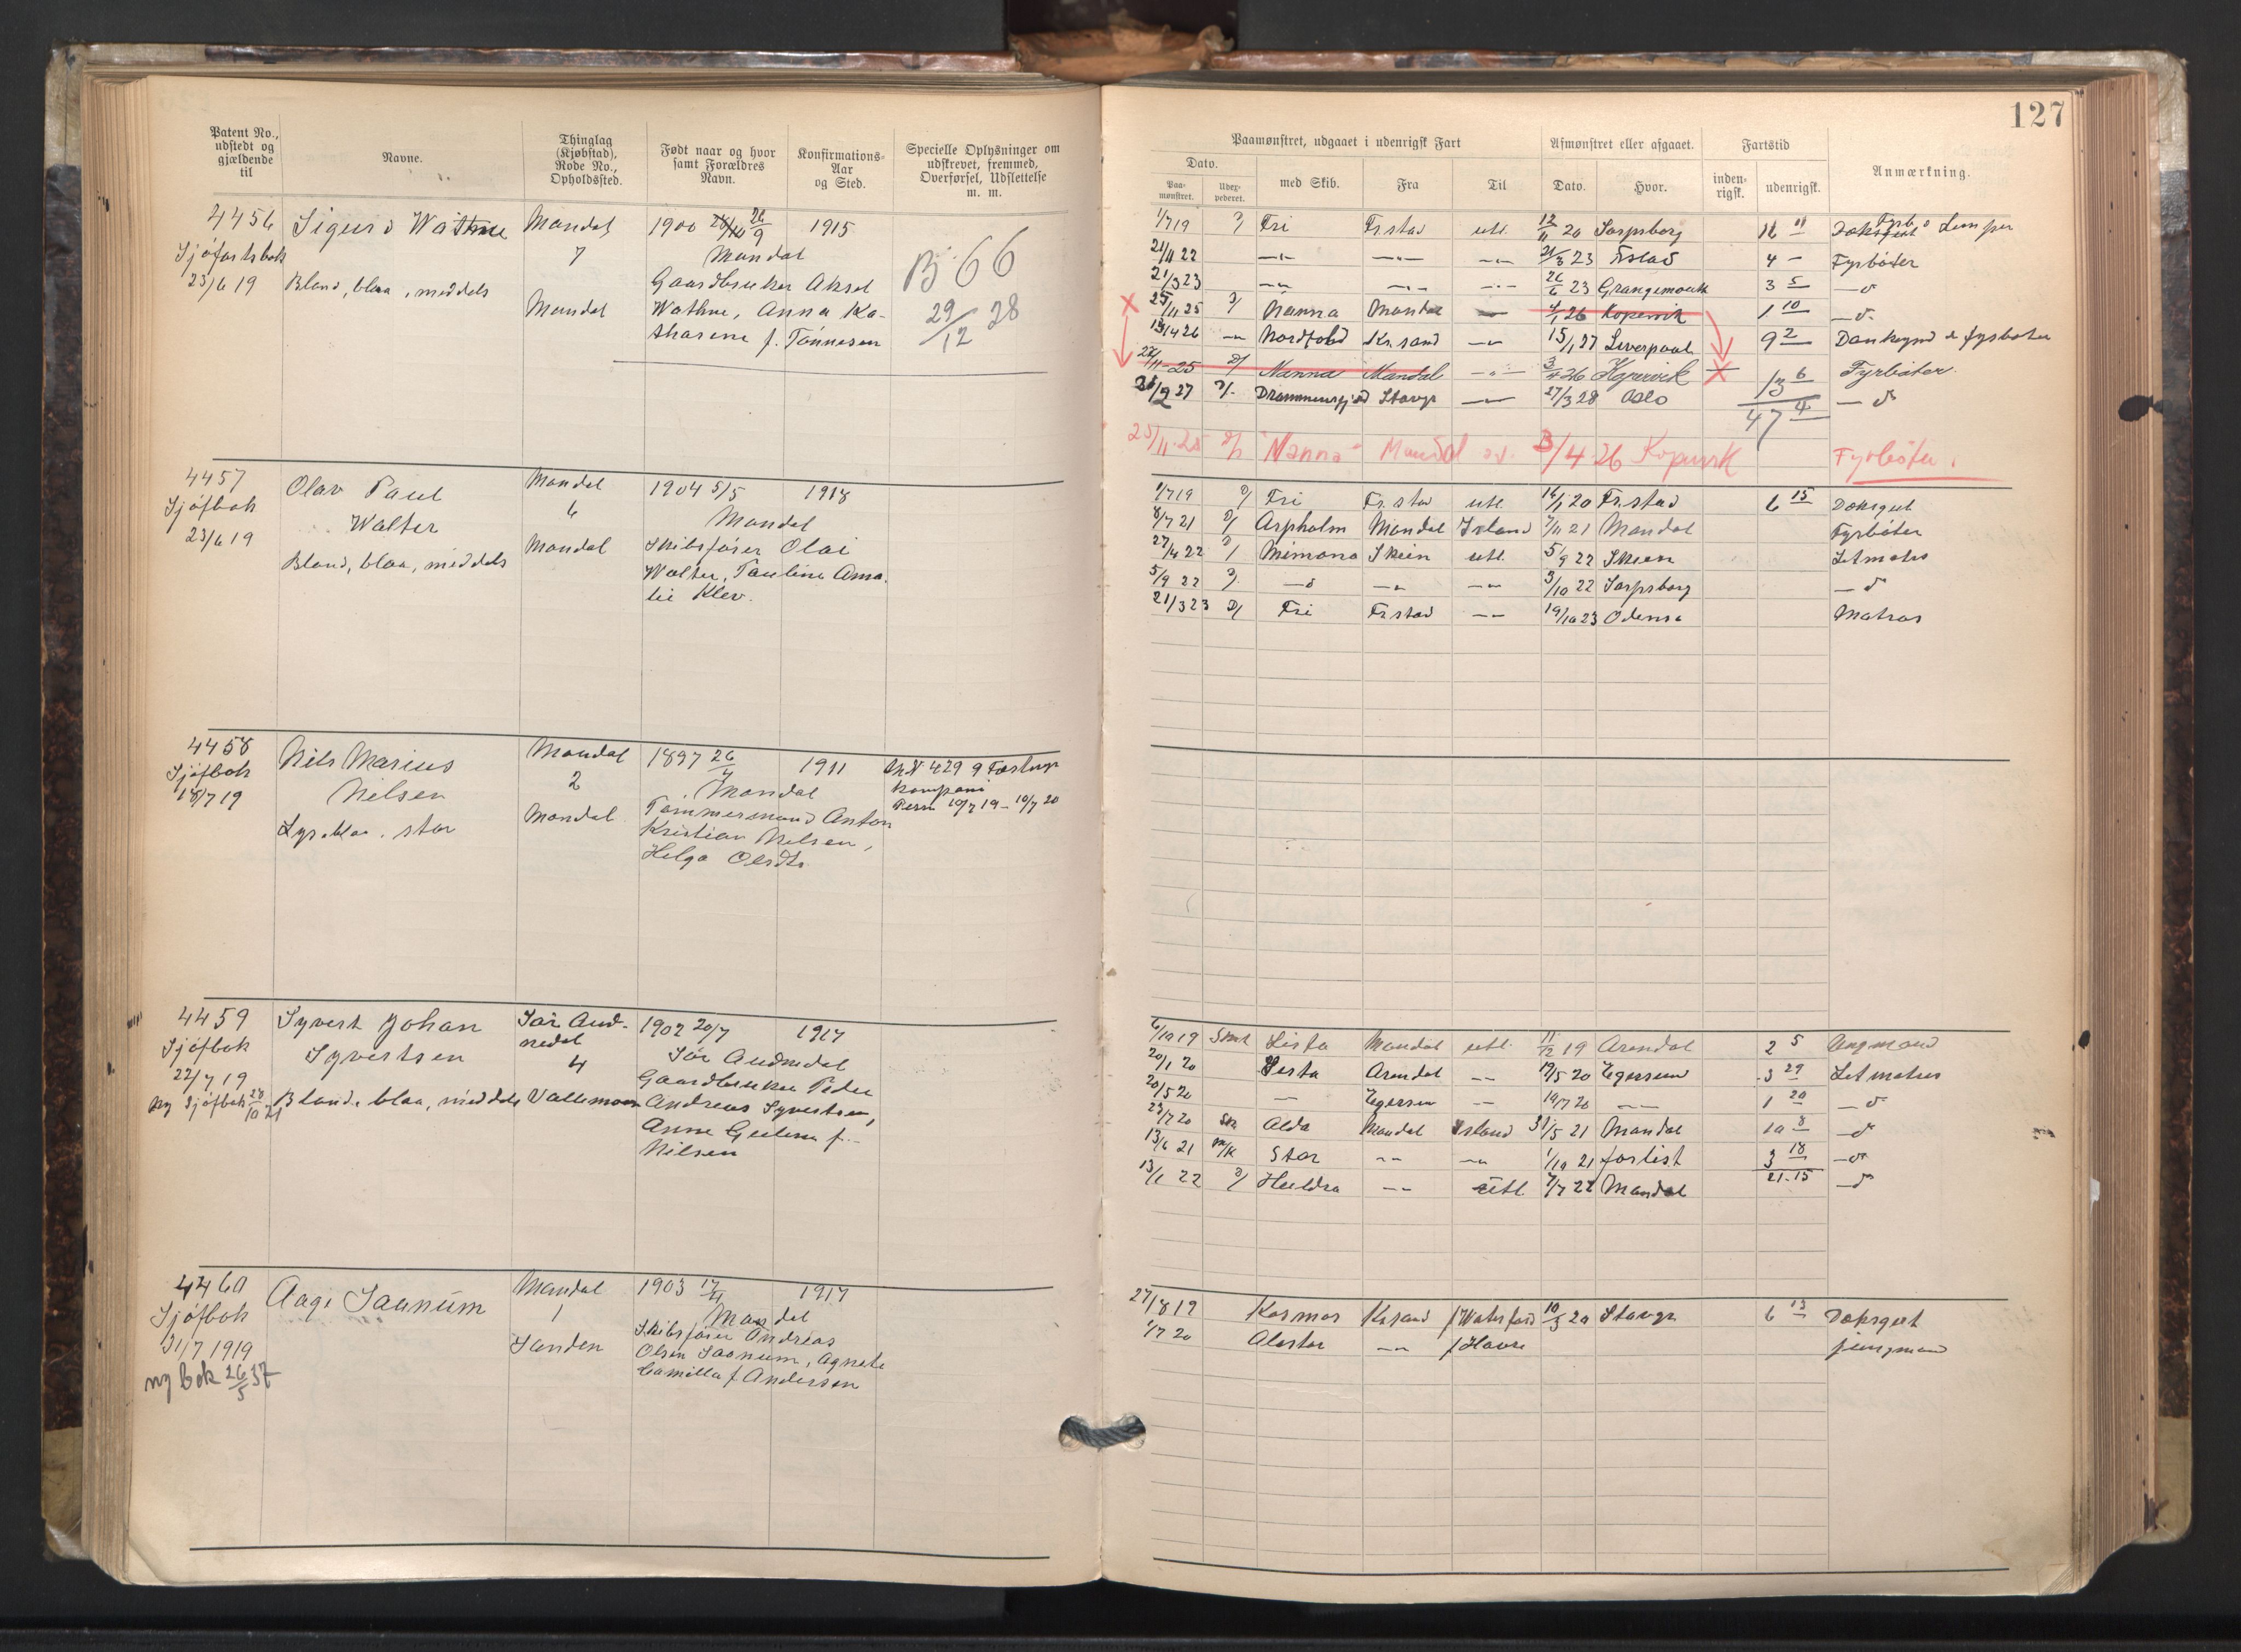 127
Patent No., udstedt og gjældende til
Navne.
Thinglag (Kjøbstad), Rode No., Opholdssted.
Født naar og hvor samt Forældres Navn.
Konfirmations-Aar og Sted.
Specielle Oplysninger om udskrevet, fremmed, Overførsel, Udslettelse m. m.
Paamønstret, udgaaet i udenrigsk Fart
Afmønstret eller afgaaet.
Fartstid
Anmærkning.
Dato.
Paa-mønstret.
Uder-pederet.
med Skib.
Fra
Til
Dato.
Hvor.
inden-rigsk.
udenrigsk.
4456 Sigurd Wathne Mandal 1900 26/9 1915
Sjøfartsbok 7 Mandal
23/6 19 Blond, blaa, middels Gaardbruker Aksel
Mandal Wathne, Anna Ka-
tharine f. Tønnesen
B 66
29/12 28
1/7 19 D/ Fri Fr.stad utl. 12/11 20 Sarpsborg 16 11 Dæksgut Fyrb. Lemper
21/11 22 —"— —"— —"— 21/3 23 Fr.stad 4 — Fyrbøter
21/3 23 —"— —"— —"— 26/6 23 Grangemouth 3 5 —d—
25/11 25 D/ Nanna Mandal — 4/1 26 Kopervik 1 10 —d—
13/4 26 —"— Nordfold Kr.sand —"— 15/1 27 Liverpool 9 2 Donkeymd & fyrbøter
25/11 25 D/ Nanna Mandal —"— 3/4 26 Kopervik Fyrbøter
25/2 27 D/ Drammensfjord Stavgr —"— 27/3 28 Oslo 13 6 —d—
47 4
25/11-25 D/ "Nanna" Mandal 3/4 26 Kopervik Fyrbøter.
4457 Olav Paul Mandal 1904 5/5 1918
Sjøfbok Walter 6 Mandal
23/6 19 Blond, blaa, middels Mandal Skibsfører Olai
Walter, Pauline Ama-
lie Klev.
1/7 19 D/ Fri Fr.stad utl. 16/1 20 Fr.stad 6 15 Dæksgut
8/7 21 D/ Aspholm Mandal Island 7/11 21 Mandal Fyrbøter
27/4 22 D/ Mimona Skien utl. 5/9 22 Skien Letmatros
5/9 22 D/ —d— —"— —"— 3/10 22 Sarpsborg —d—
21/3 23 D/ Fri Fr.stad —"— 19/10 23 Odense Matros
4458 Nils Marius Mandal 1897 26/4 1911
Sjøfbok Nilsen 2 Mandal
18/7 19 Lys, blaa, stor Mandal Tømmermand Anton
Kristian Nilsen,
Helga Olsdtr.
No 429 9 Fæstngs
kompani
Perm 10/7 19 – 10/7 20
4459 Syvert Johan Sør Aud- 1902 20/7 1917
Sjøfbok Syvertsen nedal Sør Audnedal
22/7 19 4 Gaardbruker Peder
Ny sjøfbok 28/10 21 Blond, blaa, middels Vallemoen Andreas Syvertsen,
Anne Gurine f.
Nilsen
6/10 19 Skt Lista Mandal utl. 11/12 19 Arendal 2 5 Ungmand
20/1 20 Lista Arendal —"— 19/5 20 Egersund 3 29 Letmatros
20/5 20 — Egersun —"— 19/7 20 —"— 1 20 —d—
23/7 20 Sk Alda Mandal Island 31/5 21 Mandal 10 8 —d—
13/6 21 M/K Star —"— —"— 1/10 21 forlist 3 18 —d—
21.15
13/1 22 D/ Huldra —"— utl. 7/7 22 Mandal —d—
4460 Aage Saanum Mandal 1903 17/11 1917
Sjøfbok 1 Mandal
31/7 1919 Sanden Skibsfører Andreas
Olsen Saanum, Agnete
ny bok 26/5 37 Camilla f Andersen
27/8 19 Kosmos Krsand f/Waterford 10/3 20 Stavgr 6 13 Dæksgut
1/7 20 Alaster —"— f/Havre jungmand